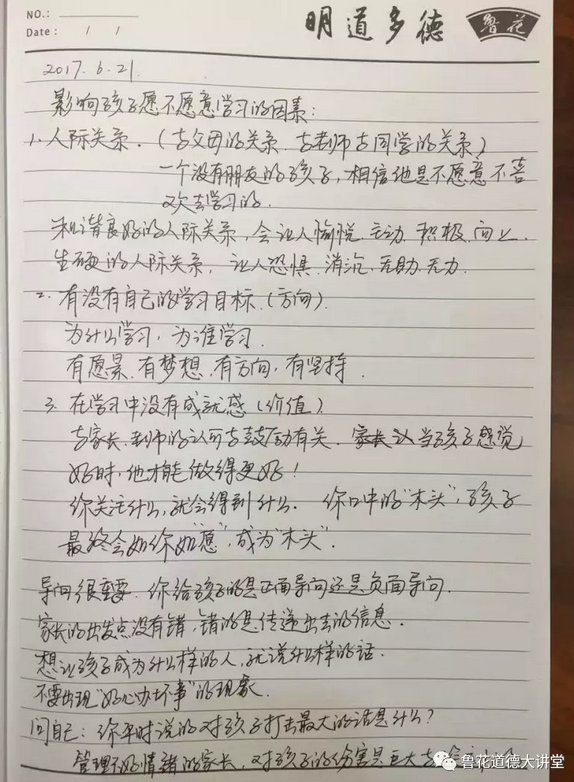 NO.:
Date: / /
明道多德
鲁花
2017.6.21
影响孩子愿不愿意学习的因素:
1.人际关系.(与父母的关系.与老师与同学的关系)
一个没有朋友的孩子,相信他是不愿意不喜
欢去学习的.
和谐良好的人际关系,会让人愉悦.主动.积极.向上.
生硬的人际关系,让人恐惧.消沉.无助.无力.
2.有没有自己的学习目标.(方向)
为什么学习,为谁学习.
有愿景.有梦想.有方向,有坚持.
3.在学习中没有成就感(价值)
与家长.老师的认可与鼓动有关.家长认当孩子感觉
好时,他才能做得更好!
你关注什么,就会得到什么.你口中的"木头",孩子
最终会如你如"愿",成为"木头".
导向很重要.你给孩子的是正面导向还是负面导向.
家长的出发点没有错,错的是传递出去的信息.
想让孩子成为什么样的人,就说什么样的话.
不要出现"好心办坏事"的现象.
问自己:你平时说的对孩子打击最大的话是什么?
管理不好情绪的家长,对孩子的伤害是巨大
鲁花道德大讲堂